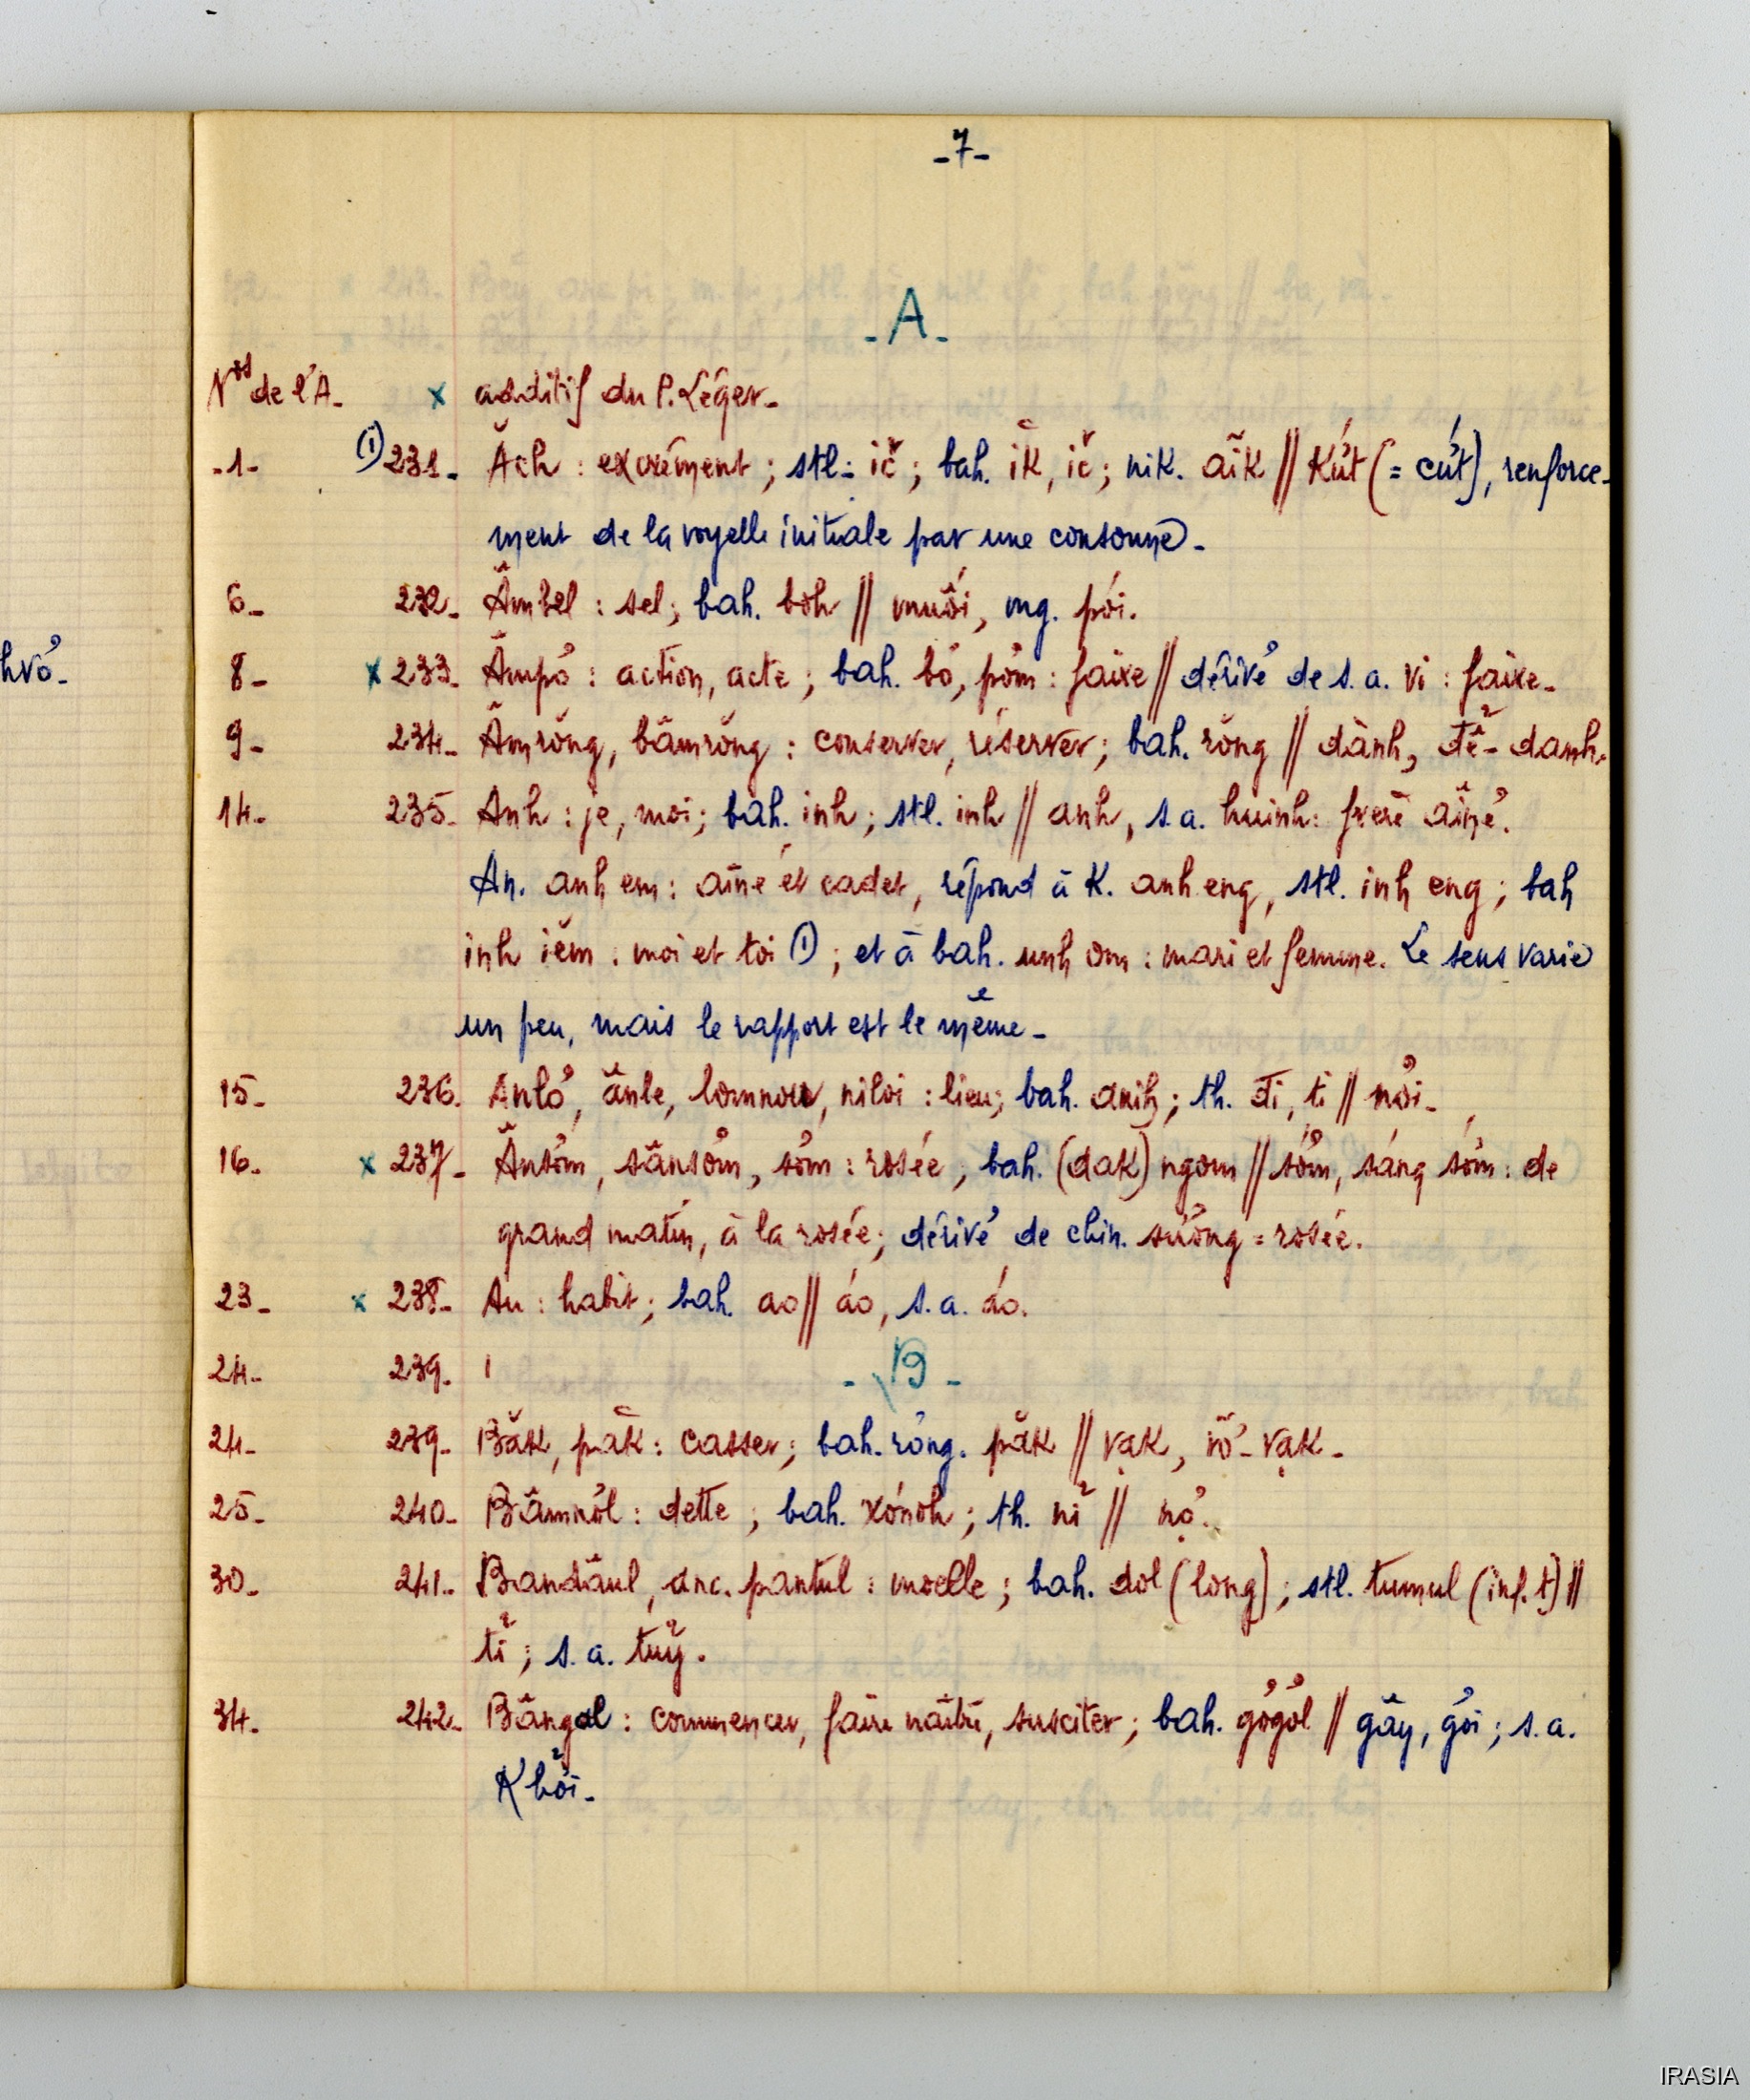 -7-
-A-
Nos de l'A- x additif du P. Léger-
-1- (1) 231- Ăch : excrément ; stl- ič ; bah. ĭk, ič ; nik. aĭk // Kứt (= cứt), renforce-
ment de la voyelle initiale par une consonne-
6- 232- Âmbel : sel ; bah. boh // muối, mg. pói.
hvơ-
8- x 233- Âmpơ : action, acte ; bah. bơ, pơm : faire // dérivé de s. a. vi : faire-
9- 234- Âmrŏng, bâmrŏng : conserver, réserver ; bah. rŏng // dành, để-danh.
14- 235- Anh : je, moi ; bah. inh ; stl. inh // anh, s. a. huinh : frère aîné.
An. anh em : aîné et cadet, répond à K. anh eng, stl. inh eng ; bah
inh iĕm : moi et toi (1) ; et à bah. unh om : mari et femme. Le sens varie
un peu, mais le rapport est le même-
15- 236. Anlơ, ânle, lomnou, niloi : lieu ; bah. anih ; th. đi, ti // nơi-
16- x 237- Ânsơm, sânsơm, sơm : rosée ; bah. (dak) ngom // sớm, sáng sớm : de
grand matin, à la rosée ; dérivé de chin. sương = rosée.
23- x 238- Au : habit ; bah. ao // áo, s. a. áo.
24- 239.
-B-
24- 239- Băk, păk : casser ; bah. rơng. păk // vạk, vỡ-vạk-
25- 240- Bâmnôl : dette ; bah. xơnoh ; th. nĭ // nợ.
30- 241- Bandâul, anc. pantul : moelle ; bah. dol (long) ; stl. tumul (inf. t) //
tỉ ; s. a. tuỷ.
34- 242- Bângal : commencer, faire naître, susciter ; bah. gơgơl // gây, gơi ; s. a.
Khởi-
IRASIA